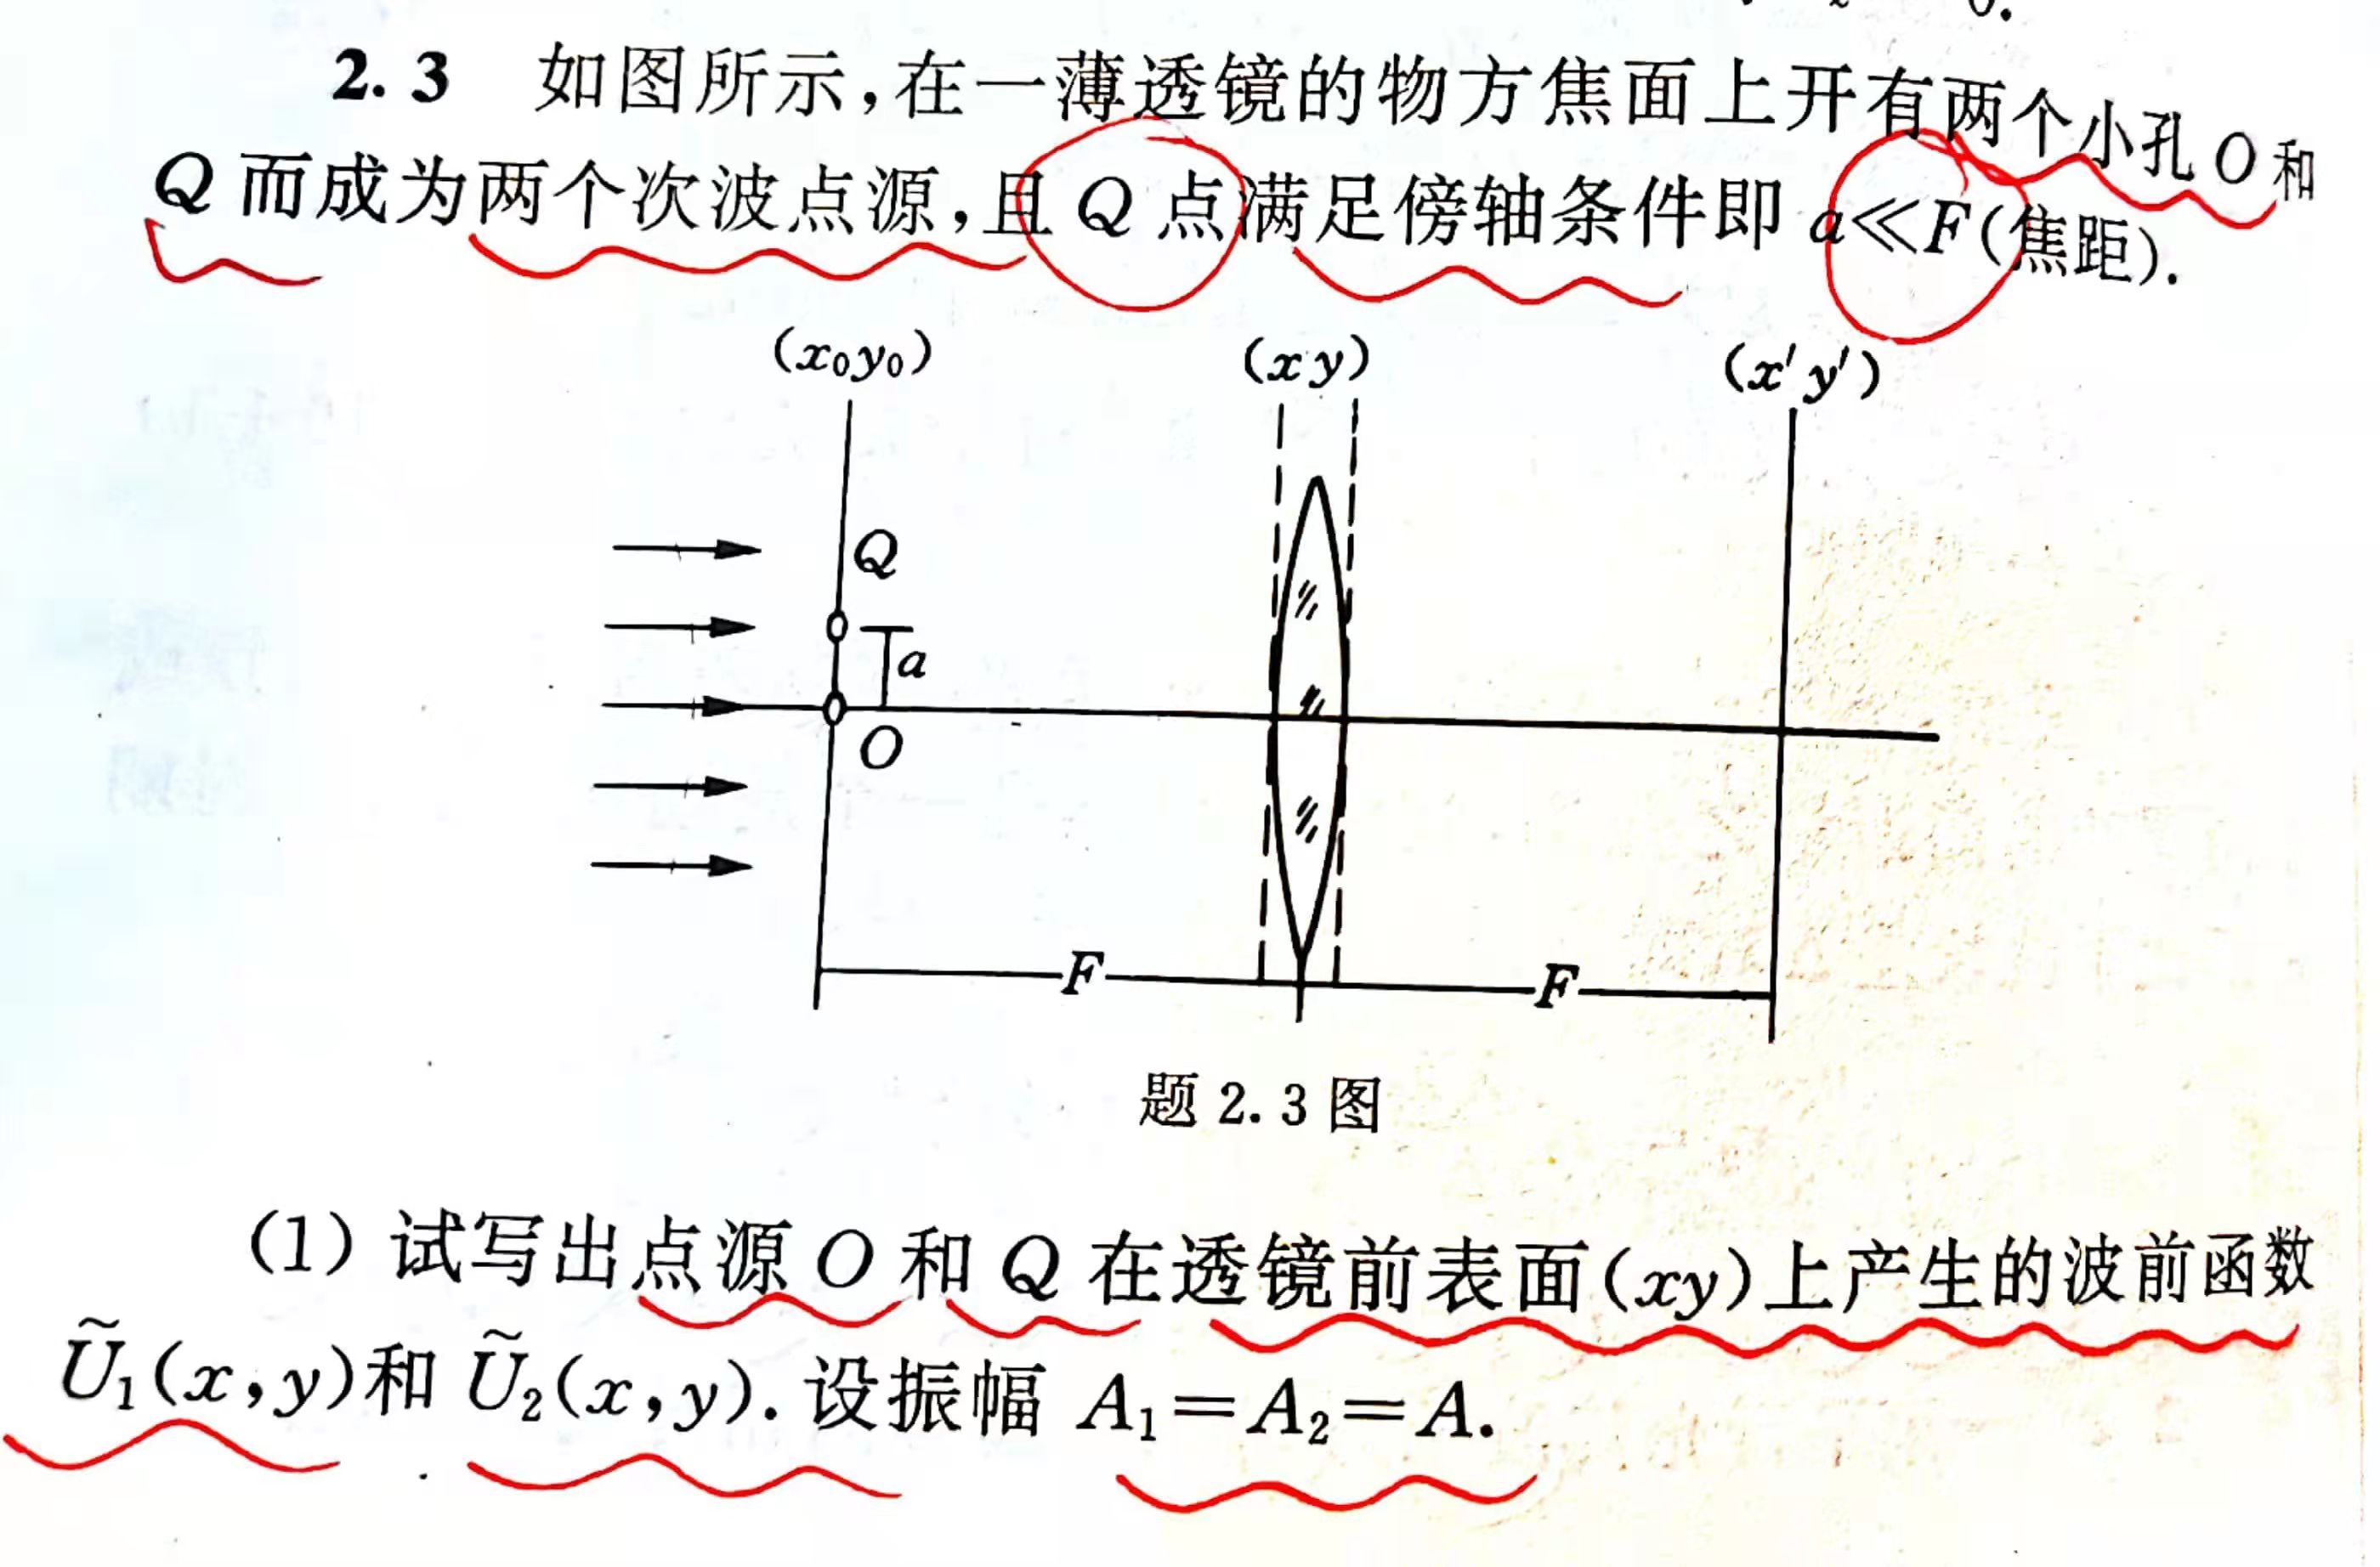 2.3 如图所示,在一薄透镜的物方焦面上开有两个小孔 O 和
Q 而成为两个次波点源,且 Q 点满足傍轴条件即 a≪F(焦距).
(x₀y₀) (xy) (x′y′)
Q
a
O
F F
题 2.3 图
(1) 试写出点源 O 和 Q 在透镜前表面(xy)上产生的波前函数
Ũ₁(x,y)和 Ũ₂(x,y). 设振幅 A₁=A₂=A.